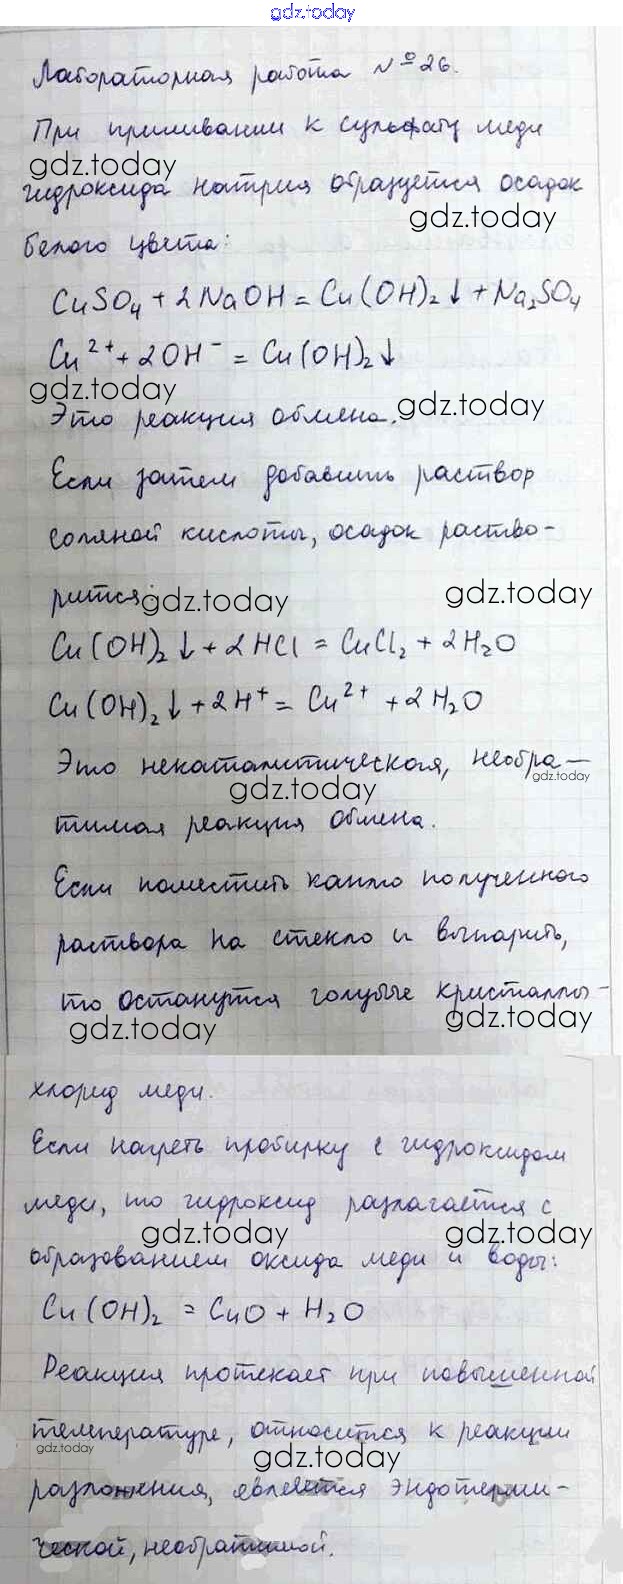 gdz.today
Лабораторная работа №26.
При приливании к сульфату меди
gdz.today
гидроксида натрия образуется осадок
gdz.today
белого цвета:
CuSO4 + 2NaOH = Cu(OH)2↓ + Na2SO4
Cu2+ + 2OH- = Cu(OH)2↓
gdz.today
Это реакция обмена.
gdz.today
Если затем добавить раствор
соляной кислоты, осадок раство-
рится:
gdz.today
gdz.today
Cu(OH)2↓ + 2HCl = CuCl2 + 2H2O
Cu(OH)2↓ + 2H+ = Cu2+ + 2H2O
Это некаталитическая, необра-
gdz.today
gdz.today
тимая реакция обмена.
Если поместить каплю полученного
раствора на стекло и выпарить,
то останутся голубые кристаллы-
gdz.today
gdz.today
хлорид меди.
Если нагреть пробирку с гидроксидом
меди, то гидроксид разлагается с
gdz.today
gdz.today
образованием оксида меди и воды:
Cu(OH)2 = CuO + H2O
Реакция протекает при повышенной
температуре, относится к реакции
gdz.today
gdz.today
разложения, является эндотерми-
ческой, необратимой.